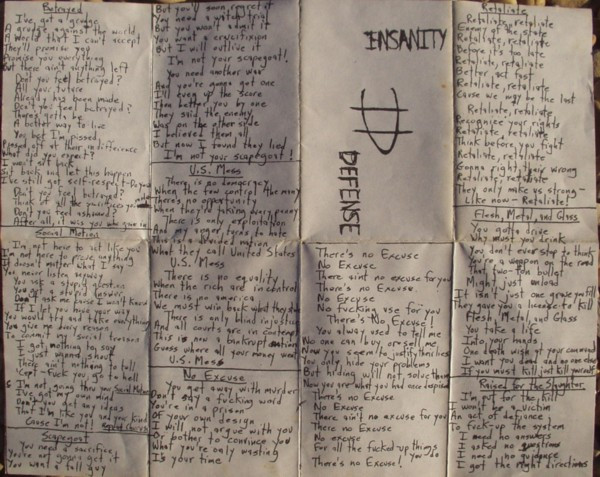 Betrayed
I've got a grudge
A grudge against the world
A world that I can't accept
They'll promise you
Promise you everything
But there ain't anything left
Don't you feel betrayed?
All your future
Already has been made
Don't you feel betrayed?
There's gotta be
A better way to live
You bet I'm pissed
Pissed off at their indifference
What did you expect?
I won't sit back
Sit back and let this happen
I've still got self-respect - Do you?
Don't you feel betrayed?
Think it all
Don't you feel ashamed?
After all, it was you
Social Motion
I'm not here to act like you
I'm not here to prove anything
It doesn't matter what I say
You never listen anyway
You ask a stupid question
You get a stupid answer
Don't ask me cause I won't know
If I let you have your way
You would try and take everything
You give me every reason
To commit a social treason
I got nothing to say
I just wanna shout
There ain't nothing to tell
Except fuck you go to hell
I'm not going thru your Social Motion
I've got my own mind
Don't you get any ideas
That I'm like you and your kind
Cause I'm not!
Scapegoat
You need a sacrifice
You're not gonna get it
You want a fall guy
But you'll soon regret it
You need a
But you won't admit it
You want a crucifixion
But I will outlive it
I'm not your scapegoat!
You need another war
And you're gonna get one
I'll even up the score
Then better you by one
They said the enemy
Was on the other side
I believed them all
But now I found they lied
I'm not your scapegoat!
U.S. Mess
There is no democracy
When the few control the many
There's no opportunity
When they're taking every penny
There is only exploitation
And the anger turns to hate
This is a divided nation
What they call United States
U.S. Mess
There is no equality
When the rich are in control
There is no america
We must win back what they stole
There is only blind injustice
And all courts are in contempt
This is now a bankrupt nation
Guess where all your money went
U.S. Mess
No Excuse
You get away with murder
Don't say a fucking word
You're in a prison
Of your own design
I will not argue with you
Or bother to convince you
What you're only wasting
It's your time
INSANITY
DEFENSE
There's no Excuse
No Excuse
There aint no excuse for you
There's no Excuse
No Excuse
No fucking use for you
There's no Excuse!
You always used to tell me
No one can buy or sell me
Now you
You only hide your problems
But hiding will not solve them
Now you are what you had once despised
There's no Excuse
No Excuse
There ain't no excuse for you
There no Excuse
No excuse
For all the fucked-up things you do
There's no Excuse!
Retaliate
Retaliate, retaliate
Enemy of the state
Retaliate, retaliate
Before it's too late
Retaliate, retaliate
Better act fast
Retaliate, retaliate
Cause we may be the last
Retaliate, retaliate
Recognize your rights
Retaliate, retaliate
Think before you fight
Retaliate, retaliate
Gonna right their wrong
Retaliate, retaliate
They only make us strong -
like now - Retaliate!
Flesh, Metal, and Glass
You gotta drive
Why must you drink
You don't ever stop to think
You're a weapon on the road
That two-ton bullet
Might just unload
It isn't just one grave you fill
They gave you a license to kill
Flesh, Metal, and Glass
You take a life
Into your hands
One death wish at your command
I want you dead and no one else
If you must kill just kill yourself
Raised for the Slaughter
I'm put for the kill
I won't be a victim
An act of defiance
To fuck-up the system
I need no answers
I asked no questions
I need no guidance
I got the right directions